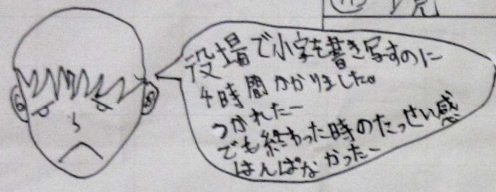 役場で小字を書き写すのに
4時間かかりました。
つかれたー
でも終わった時のたっせい感
はんぱなかったー